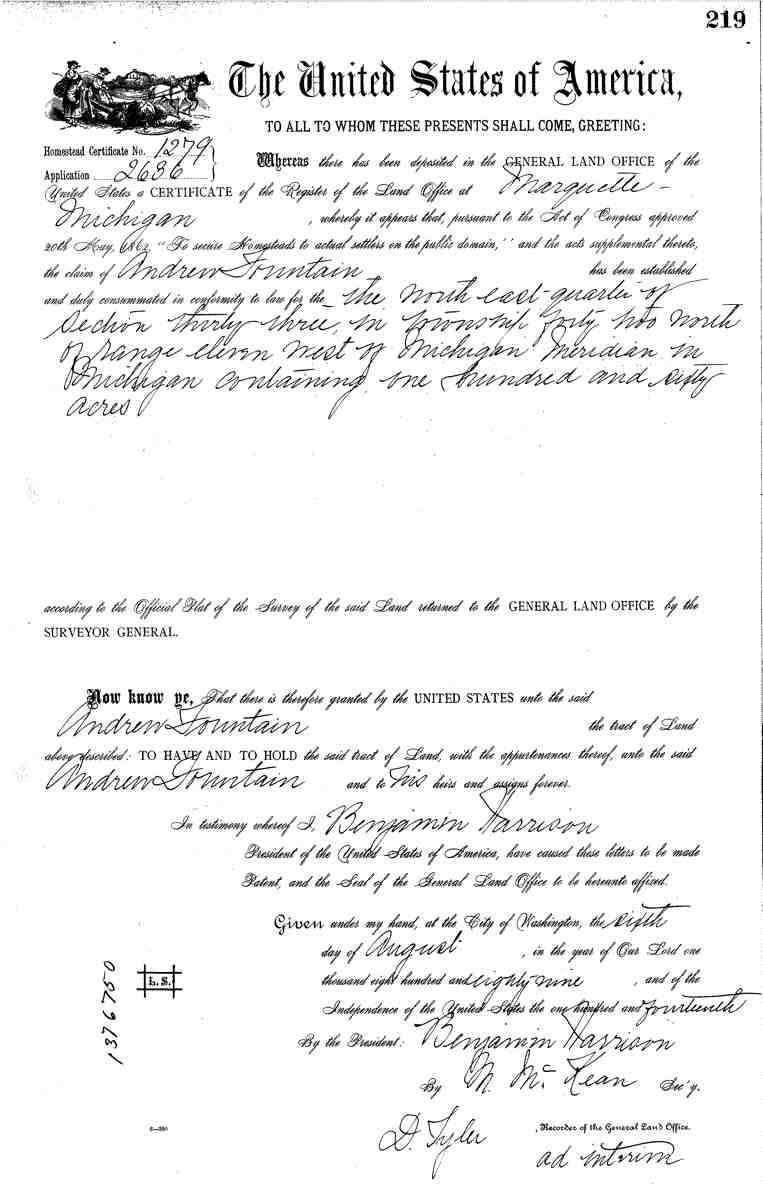 219
The United States of America,
TO ALL TO WHOM THESE PRESENTS SHALL COME, GREETING:
Homestead Certificate No. 1279
Application 2636
Whereas there has been deposited in the GENERAL LAND OFFICE of the
United States a CERTIFICATE of the Register of the Land Office at Marquette
Michigan, whereby it appears that, pursuant to the Act of Congress approved
20th May, 1862, "To secure Homesteads to actual settlers on the public domain," and the acts supplemental thereto,
the claim of Andrew Fountain has been established
and duly consummated in conformity to law for the the north east quarter of
section thirty three, in township forty two north
of range eleven west of Michigan Meridian in
Michigan containing one hundred and sixty
acres
according to the Official Plat of the Survey of the said Land returned to the GENERAL LAND OFFICE by the
SURVEYOR GENERAL.
Now know ye, That there is therefore granted by the UNITED STATES unto the said
Andrew Fountain the tract of Land
above described: TO HAVE AND TO HOLD the said tract of Land, with the appurtenances thereof, unto the said
Andrew Fountain and to his heirs and assigns forever.
In testimony whereof I, Benjamin Harrison
President of the United States of America, have caused these letters to be made
Patent, and the Seal of the General Land Office to be hereunto affixed.
Given under my hand, at the City of Washington, the sixth
day of August, in the year of Our Lord one
thousand eight hundred and eighty nine, and of the
Independence of the United States the one hundred and fourteenth
By the President: Benjamin Harrison
By M. McKean Sec'y.
D. Tyler, Recorder of the General Land Office.
ad interim
L. S.
1376750
6—390